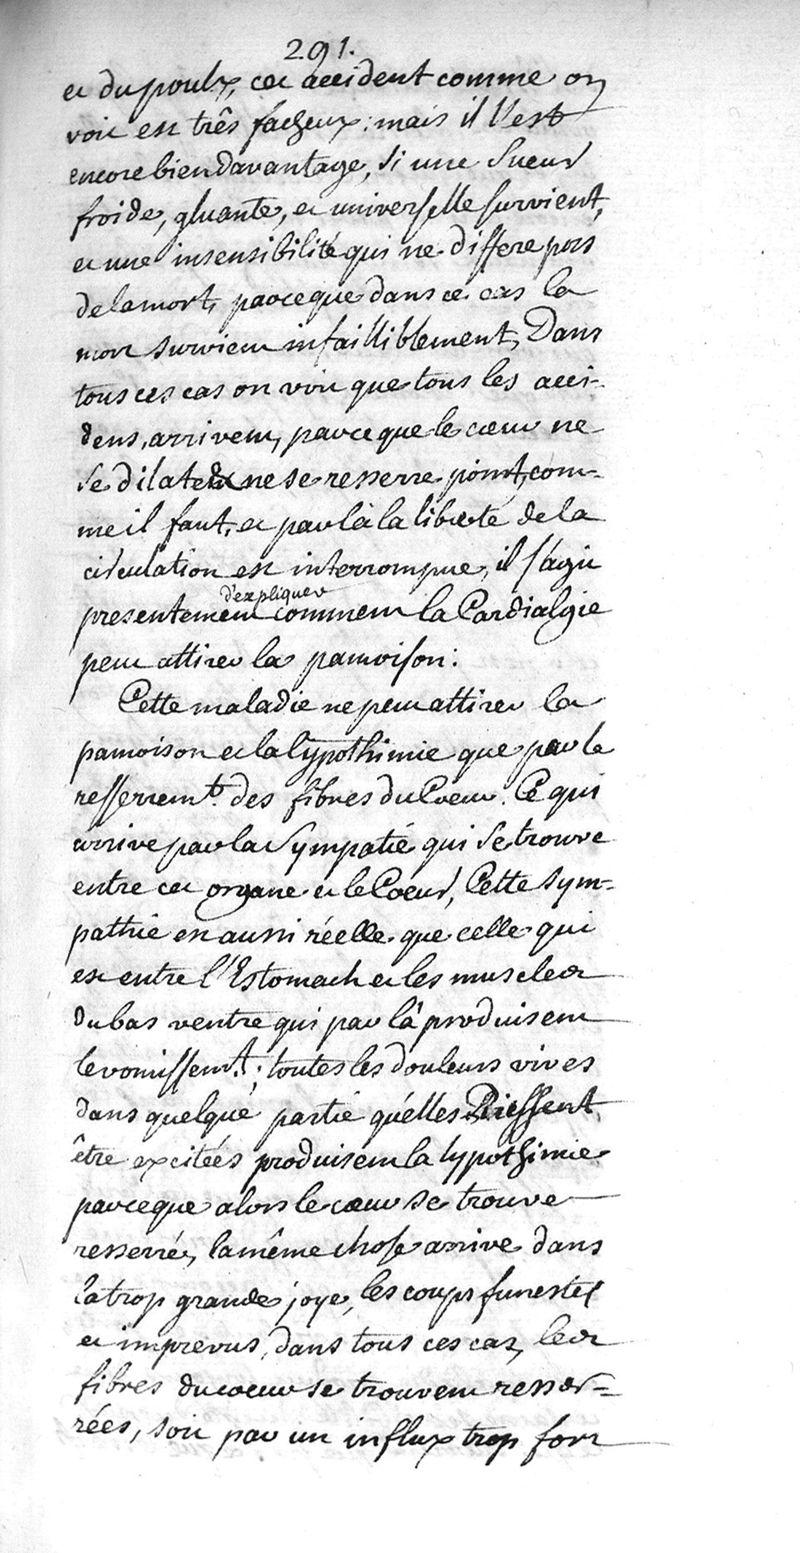 291.
et du poulx, cet accident comme on
voit est très facheux; mais il l'est
encore bien davantage, si une sueur
froide, gluante, et universelle survient,
et une insensibilité qui ne differe pas
de la mort, parceque dans ce cas la
mort survient infailliblement, Dans
tous ces cas on voit que tous les acci-
dens, arrivent, parceque le cœur ne
se dilate et ne se resserre point, com-
me il faut, et par là la liberté de la
circulation est interrompue, il s'agit
presentement d'expliquer comment la Cardialgie
peut attirer la pamoison:
Cette maladie ne peut attirer la
pamoison et la lypothimie que par le
resserremt. des fibres du Coeur. Ce qui
arrive par la sympatie qui se trouve
entre cet organe et le Coeur, Cette sym-
pathie est aussi réelle que celle qui
est entre l'Estomach et les muscles
du bas ventre qui par là produisent
le vomissemt.; toutes les douleurs vives
dans quelque partie qu'elles Puissent
être excitées produisent la lypothimie
parceque alors le cœur se trouve
resserré, la même chose arrive dans
la trop grande joye, les coups funestes
et imprevus, dans tous ces cas, les
fibres du coeur se trouvent resser-
rées, soit par un influx trop fort